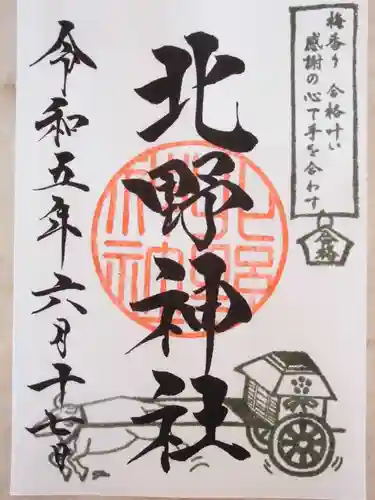 梅香り 合格叶い
感謝の心で手を合わす
合格
北野神社
北野神社
令和五年六月十七日